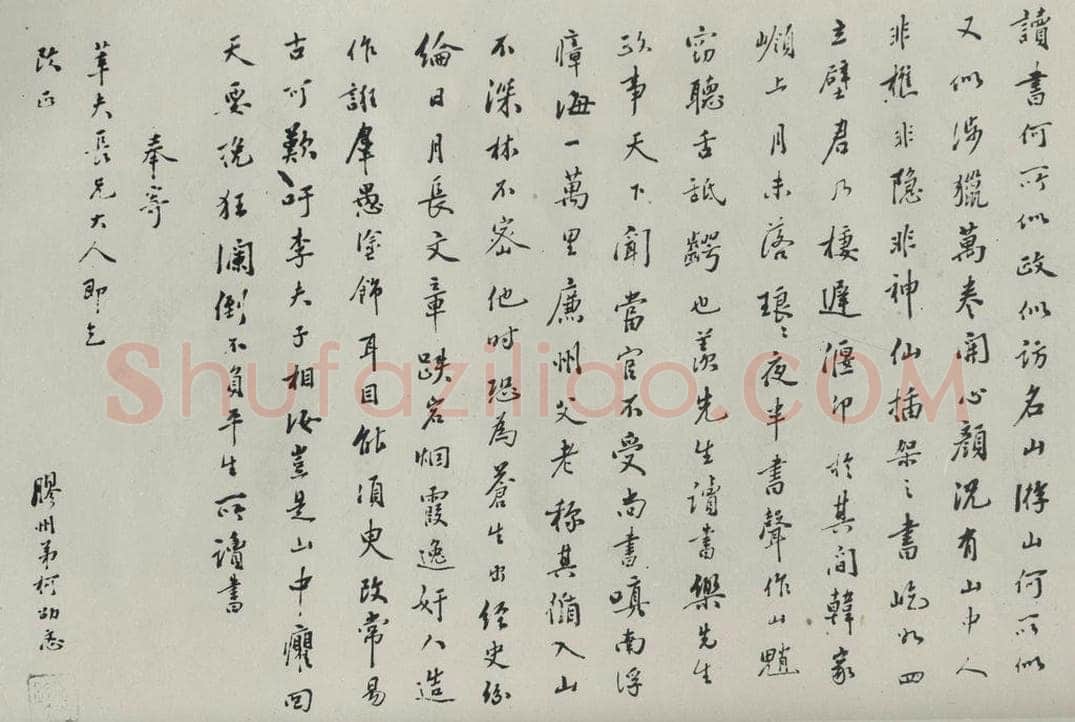 讀書何所似政似訪名山游山何所似
又似涉獵萬卷開心顏況有山中人
非樵非隱非神仙插架之書屹如四
立壁君乃棲遲偃卬於其間韓家
嶺上月未落琅〻夜半書聲作山魈
竊聽舌舐齶也羨先生讀書樂先生
政事天下聞當官不受尚書嗔南浮
漳海一萬里廉州父老稱其循入山
不深林不密他時恐為蒼生出經史紛
綸日月長文章跌宕烟霞逸奸人造
作誑羣愚塗飾耳目能須臾改常易
古可歎吁李夫子相汝豈是山中癯回
天要挽狂瀾倒不負平生所讀書
奉寄
葦夫長兄大人即乞
改正
膠州弟柯劭忞
Shufaziliao.COM